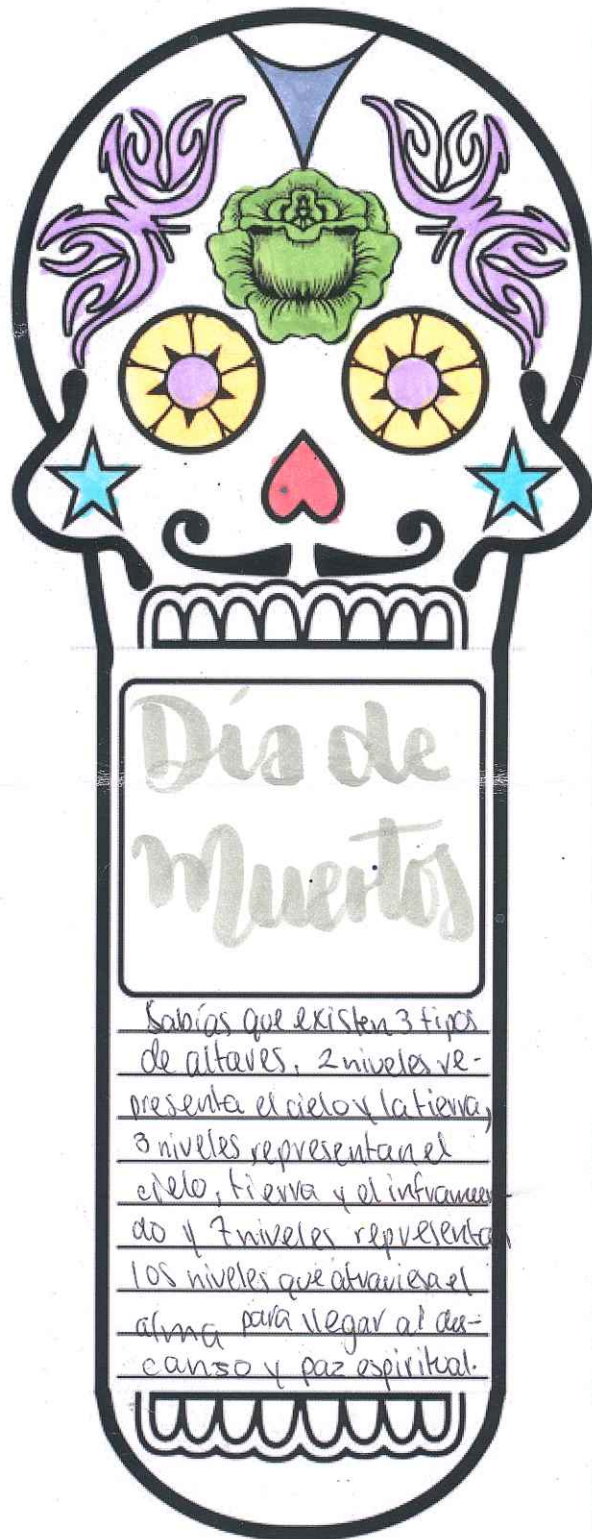 Día de
Muertos
Sabías que existen 3 tipos
de altares, 2 niveles re-
presenta el cielo y la tierra,
3 niveles representan el
cielo, tierra y el inframun-
do y 7 niveles representa
los niveles que atraviesa el
alma para llegar al des-
canso y paz espiritual.